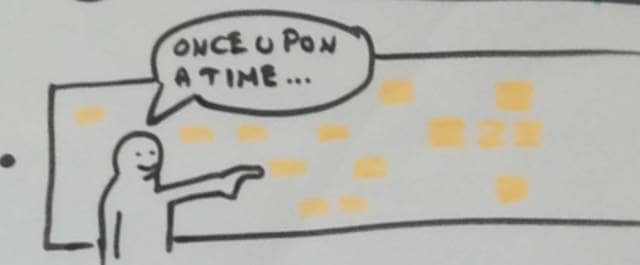 ONCE UPON
A TIME...